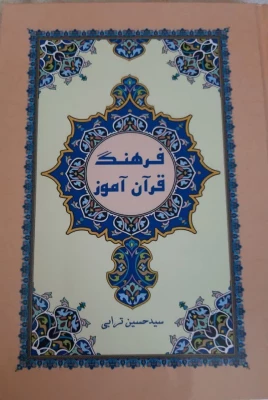 فرهنگ
قرآن آموز
سیدحسین ترابی